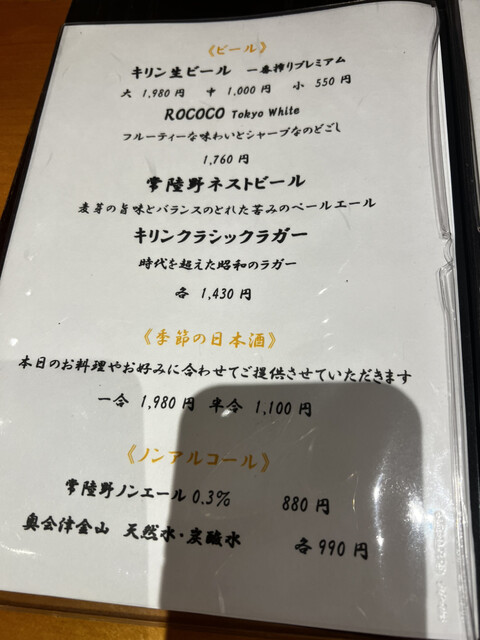 《ビール》
キリン生ビール 一番搾りプレミアム
大 1,980円 中 1,000円 小 550円
ROCOCO Tokyo White
フルーティーな味わいとシャープなのどごし
1,760円
常陸野ネストビール
麦芽の旨味とバランスのとれた苦みのペールエール
キリンクラシックラガー
時代を超えた昭和のラガー
各 1,430円
《季節の日本酒》
本日のお料理やお好みに合わせてご提供させていただきます
一合 1,980円 半合 1,100円
《ノンアルコール》
常陸野ノンエール 0.3% 880円
奥会津金山 天然水・炭酸水 各990円